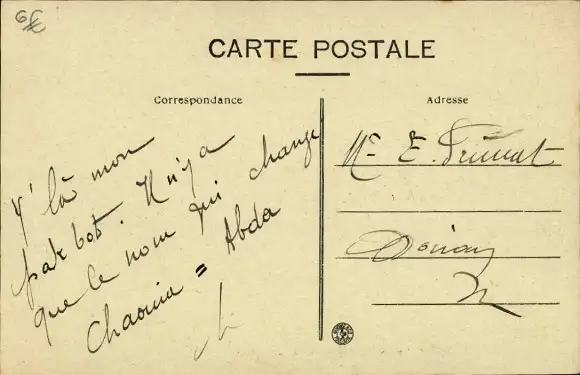 CARTE POSTALE
Correspondance
Adresse
Y' là mon
pak bot. Il n'y a
que le nom qui change
Chaouia = Abda
Mr E.
Douai